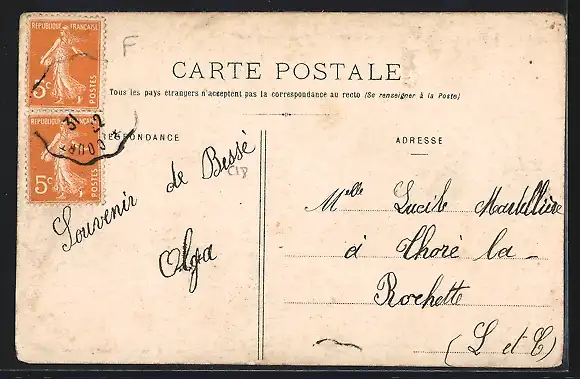 RÉPUBLIQUE FRANÇAISE
5c POSTES
RÉPUBLIQUE FRANÇAISE
5c POSTES
F
CARTE POSTALE
Tous les pays étrangers n'acceptent pas la correspondance au recto (Se renseigner à la Poste)
RESPONDANCE
ADRESSE
Souvenir de Bessé
C18
Olga
Melle Lucile Martellière
à Thoré la-
Rochette
(L et C)